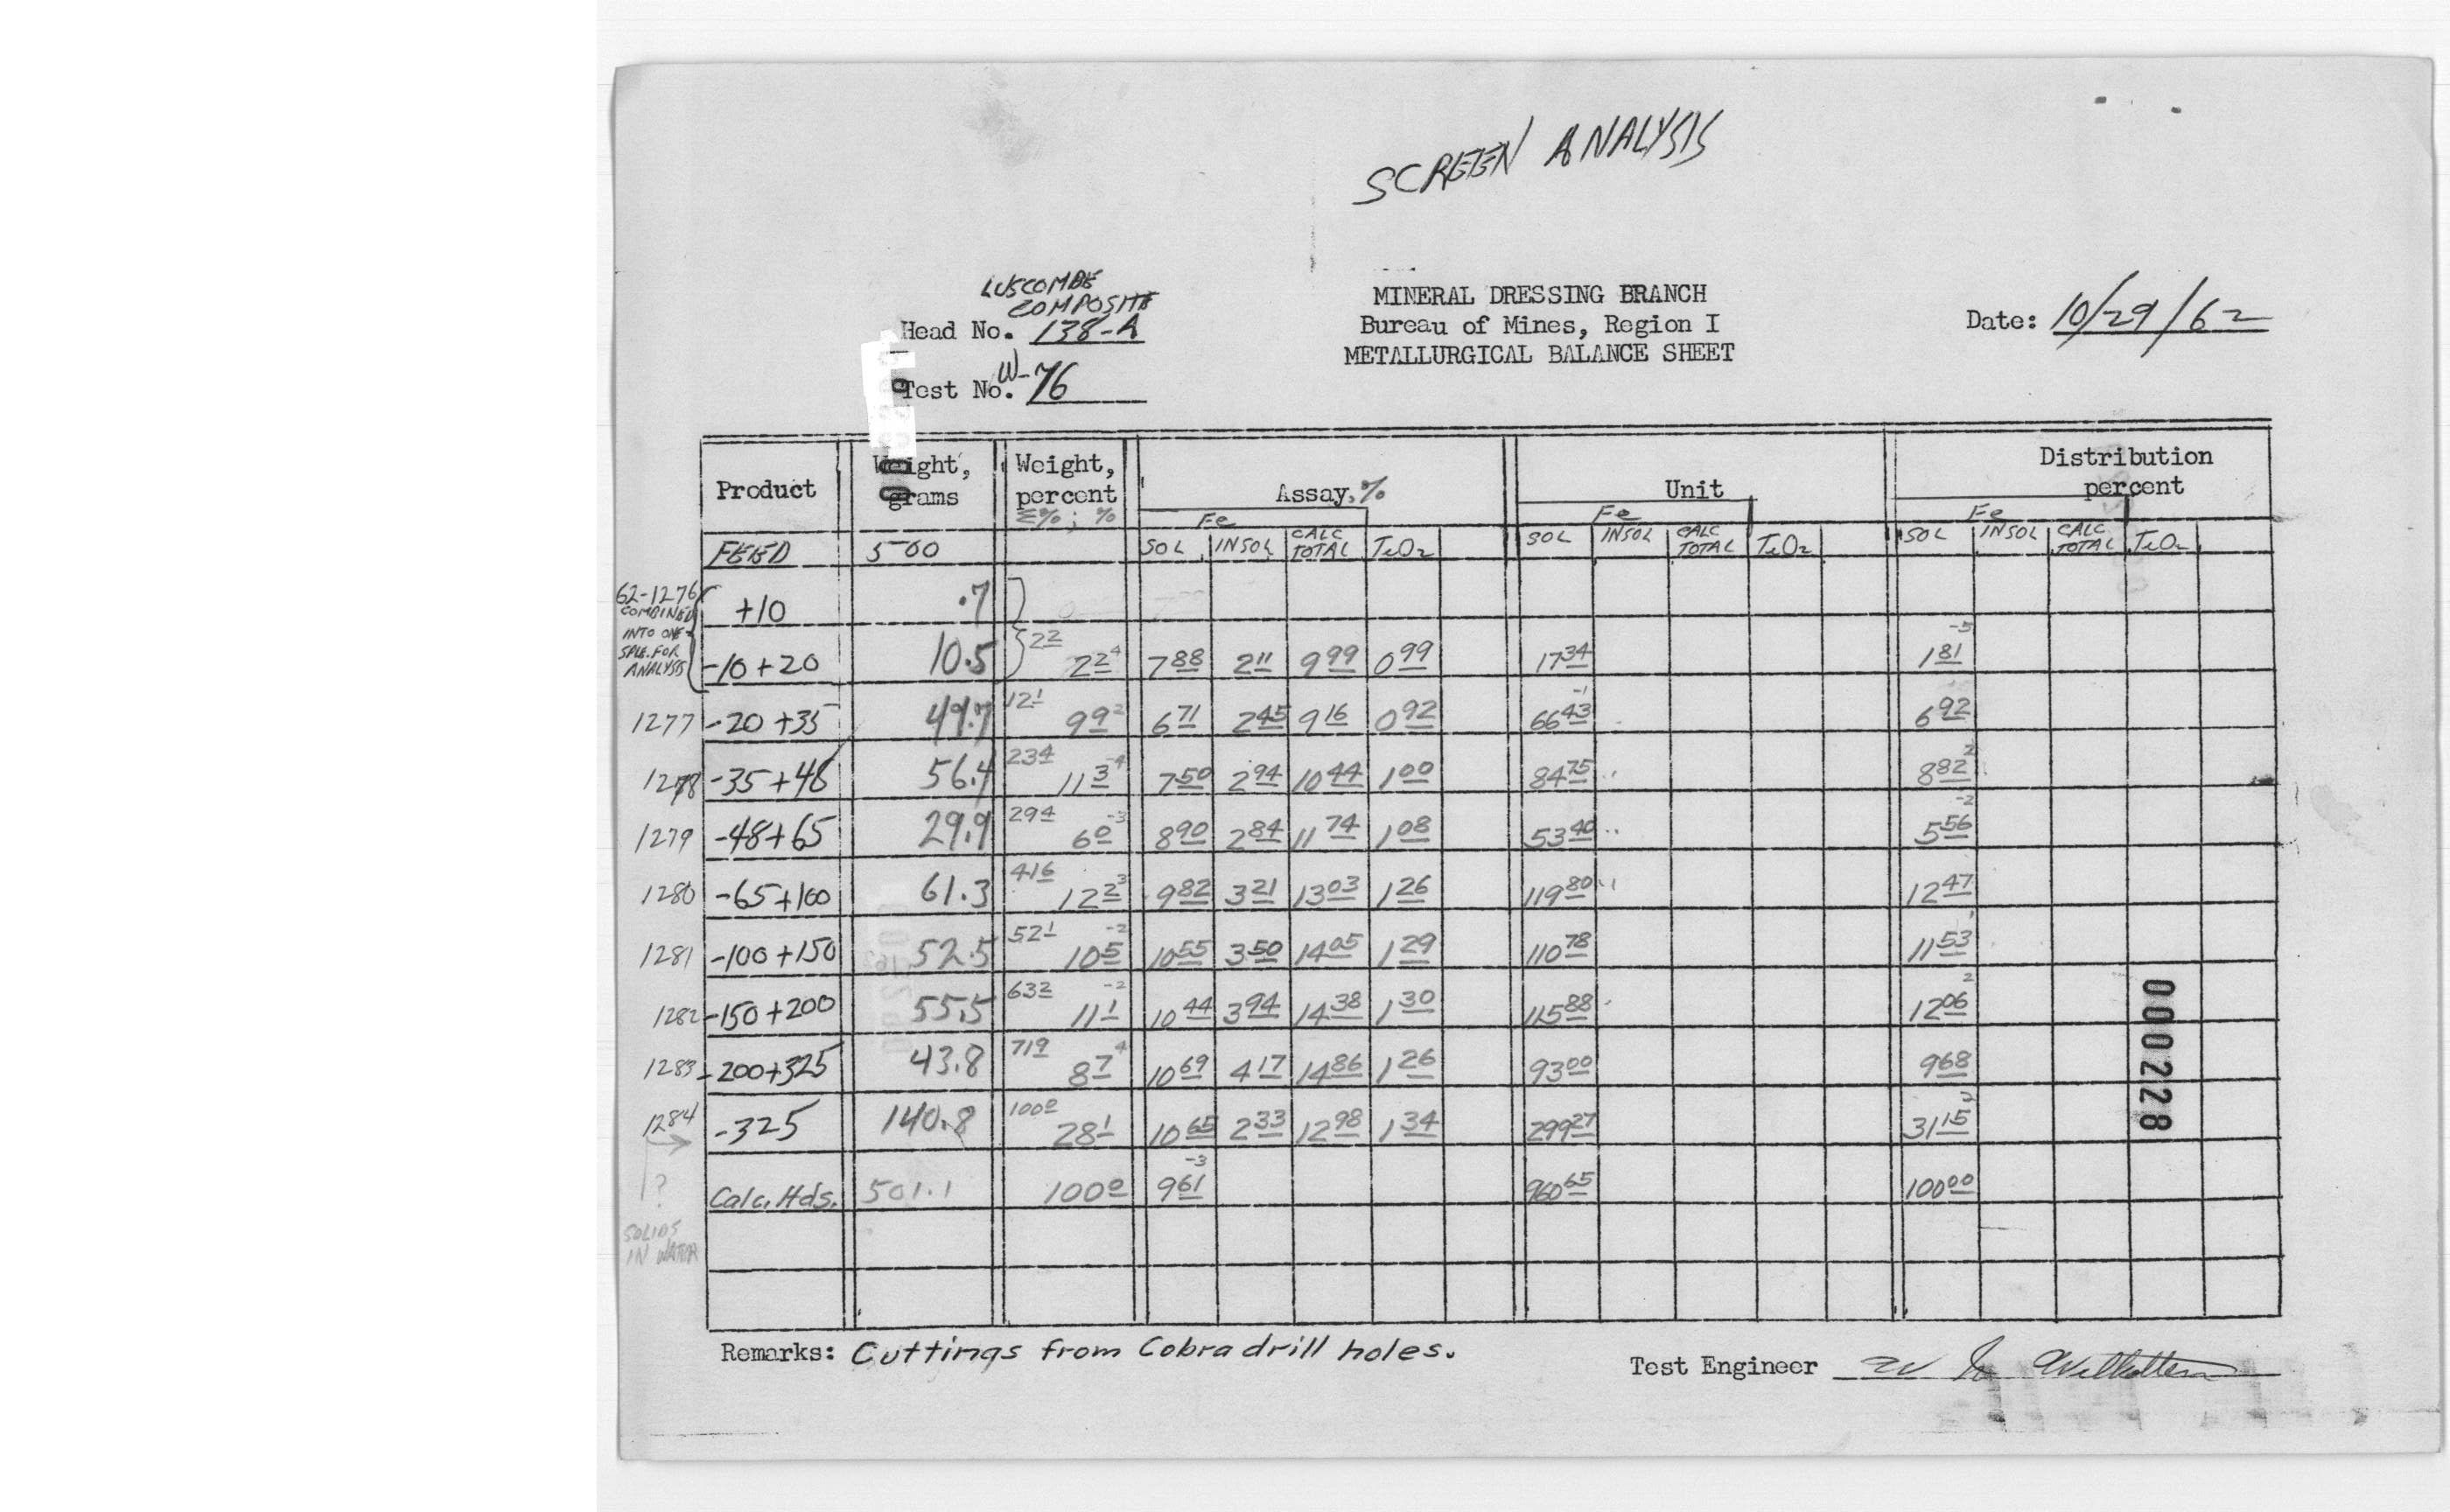 SCREEN ANALYSIS
LUSCOMBE
COMPOSITE
Head No. 138-A
Test No. W-76
MINERAL DRESSING BRANCH
Bureau of Mines, Region I
METALLURGICAL BALANCE SHEET
Date: 10/29/62
Product Weight, grams Weight, percent Σ%; % Assay, % Unit Distribution percent
Fe Fe Fe
FEED 500 SOL INSOL CALC TOTAL TiO2 SOL INSOL CALC TOTAL TiO2 SOL INSOL CALC TOTAL TiO2
62-1276 COMBINED INTO ONE SPLE. FOR ANALYSIS
+10 .7
-10+20 10.5 22 22 4 788 211 999 099 1734 181 -5
1277 -20+35 49.7 121 99 2 671 245 916 092 6643 -1 692
1278 -35+48 56.4 234 113 -4 750 294 1044 100 8475 882 2
1279 -48+65 29.9 294 60 -3 890 284 1174 108 5340 556 -2
1280 -65+100 61.3 416 122 3 982 321 1303 126 11980 1247
1281 -100+150 52.5 521 105 -2 1055 350 1405 129 11078 1153 1
1282 -150+200 55.5 632 111 -2 1044 394 1438 130 11588 1206 2
1283 -200+325 43.8 719 87 4 1069 417 1486 126 9300 968
1284 -325 140.8 1000 281 1065 233 1298 134 29927 3115 2
Calc. Hds. 501.1 1000 961 -3 96065 10000
?
SOLIDS
IN WATER
000228
Remarks: Cuttings from Cobra drill holes.
Test Engineer